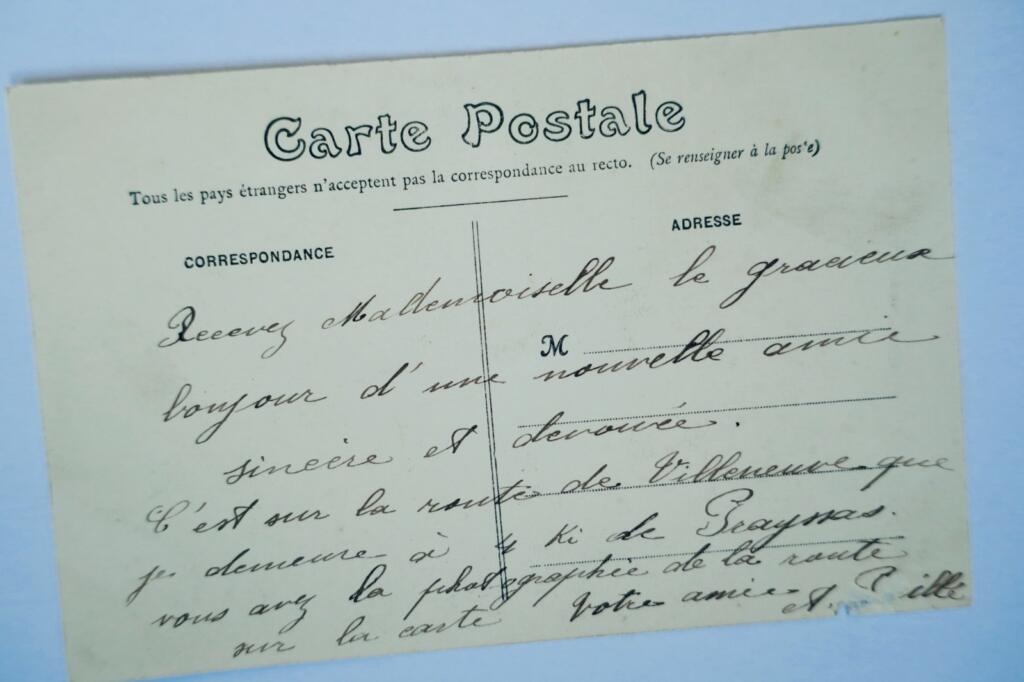 Carte Postale
Tous les pays étrangers n'acceptent pas la correspondance au recto. (Se renseigner à la pos'e)
CORRESPONDANCE
ADRESSE
M
Recevez Mademoiselle le gracieux
bonjour d'une nouvelle amie
sincère et devouée.
C'est sur la route de Villeneuve que
je demeure à 4 Ki de Prayssas.
vous avez la photographie de la route
sur la carte Votre amie A.